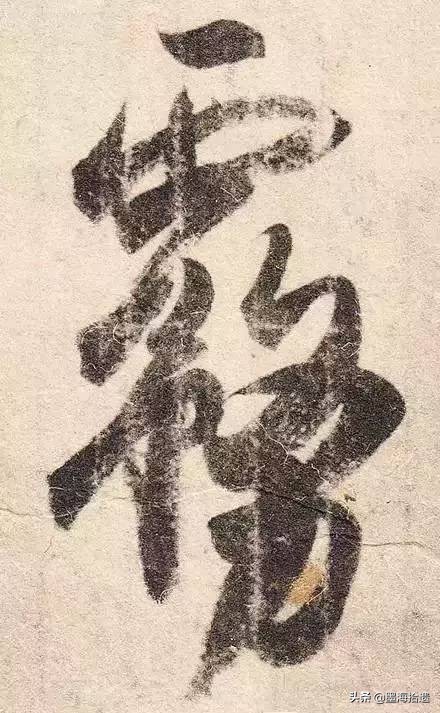 霧
头条 @墨海拾遗